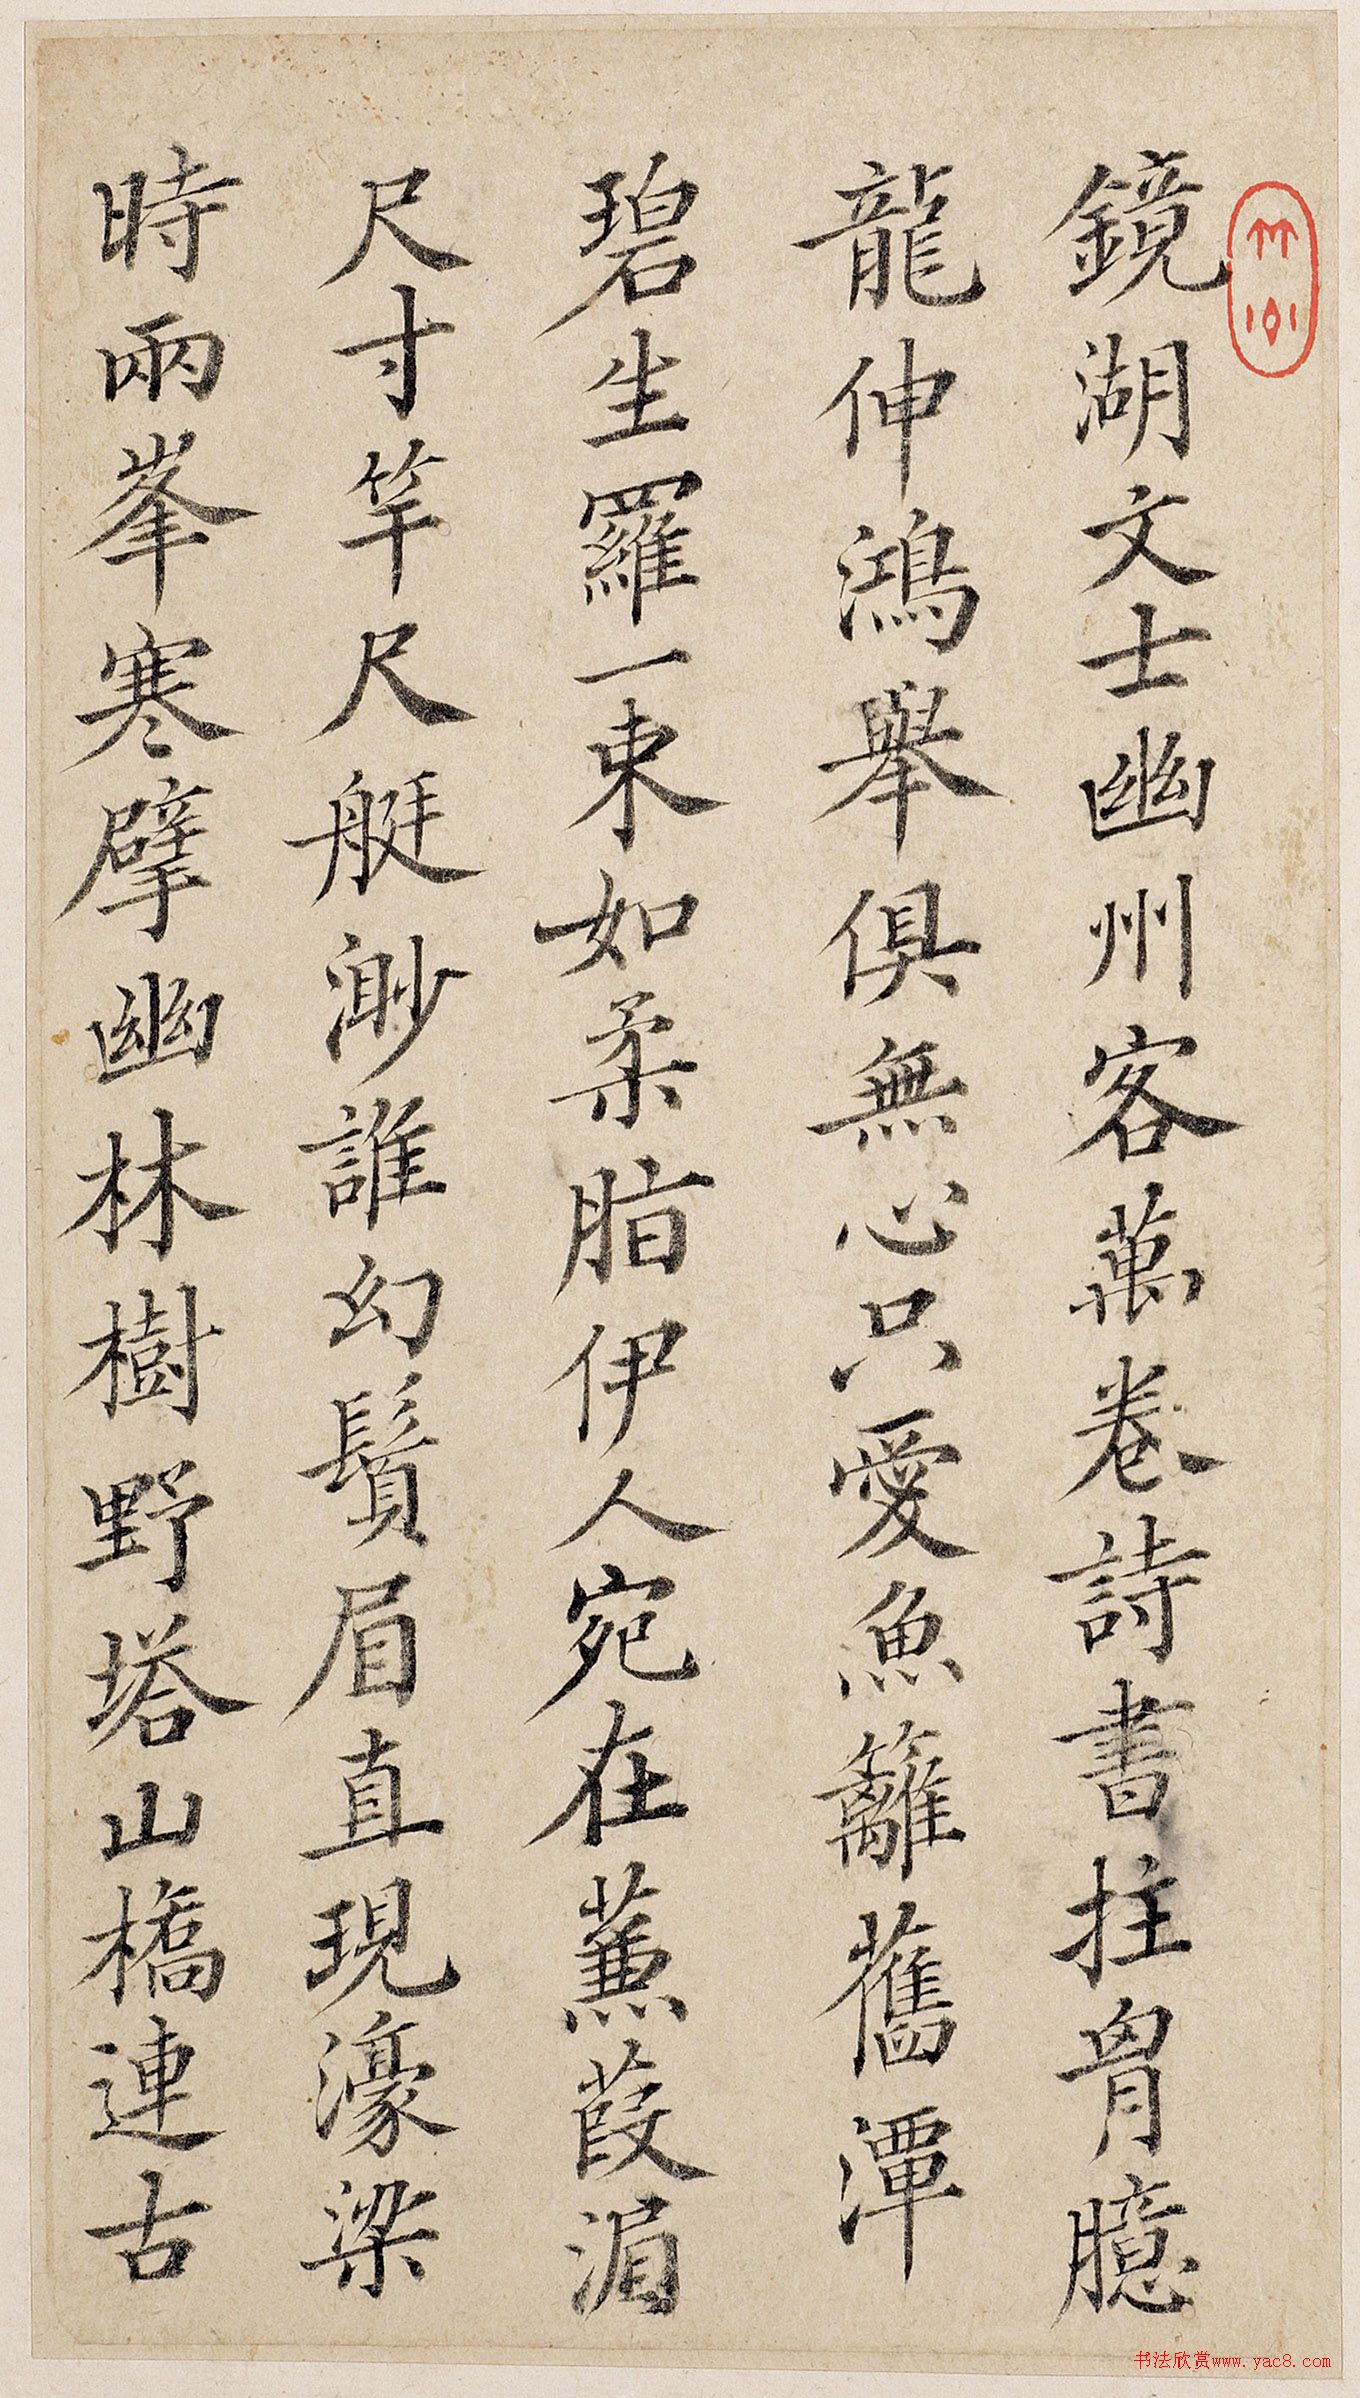 鏡湖文士幽州客萬卷詩書拄胷臆
龍伸鴻舉俱無心只愛魚籬舊潭
碧生羅一束如柔脂伊人宛在蒹葭湄
尺寸竿尺艇渺誰幻鬚眉直現濠梁
時兩峯寒擘幽林樹野塔山橋連古
书法欣赏www.yac8.com